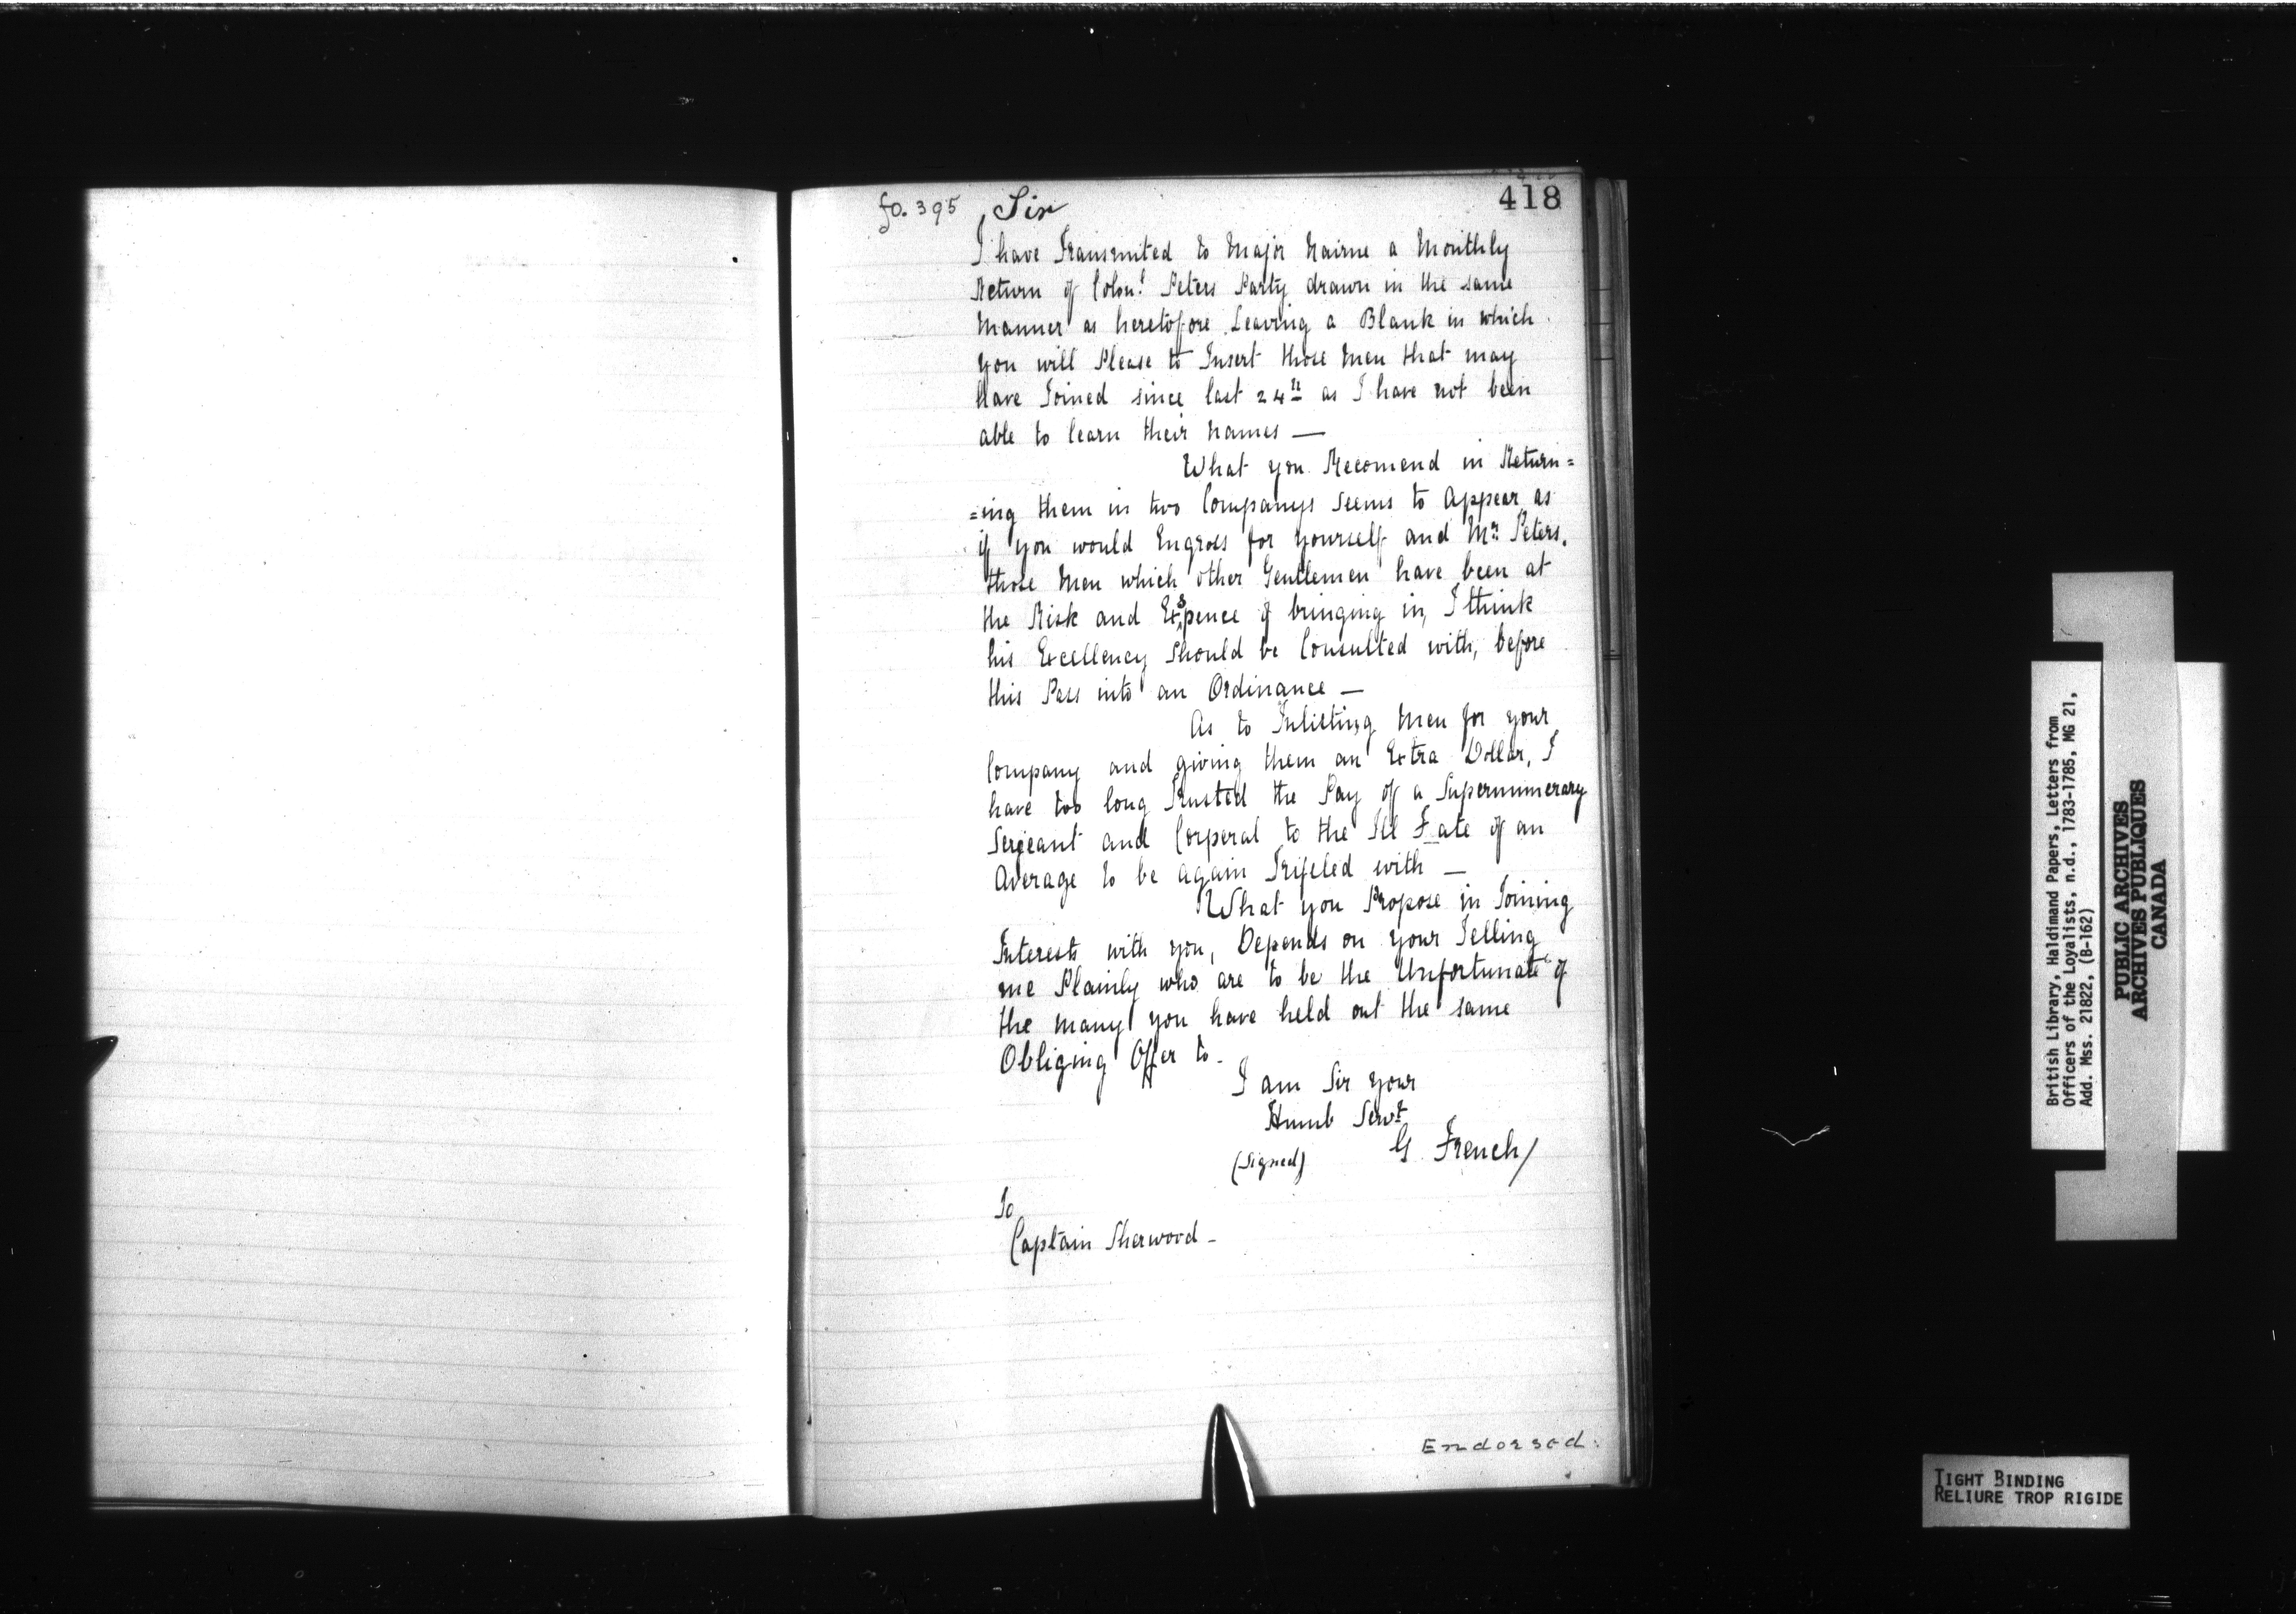 fo. 395 Sir 418
I have Transmited to Major Nairne a Monthly
Return of Colon.l Peters Party drawn in the same
Manner as heretofore Leaving a Blank in which
you will Please to Insert those Men that may
have Joined since last 24th as I have not been
able to learn their names —
What you Recomend in Return=
=ing them in two Companys Seems to Appear as
if you would Engross for yourself and Mr. Peters.
those Men which other Gentlemen have been at
the Risk and Exspence of bringing in, I think
his Excellency Should be Consulted with, before
this Pass into an Ordinance —
As to Inlisting Men for your
Company and giving them an Extra Dollar, I
have too long Trusted the Pay of a Supernumerary
Sergeant and Corporal to the Ill Fate of an
Average to be again Trifeled with —
What you Propose in Joining
Interests with you, Depends on your Telling
me Plainly who are to be the Unfortunate of
the many you have held out the same
Obliging Offer to -
I am Sir your
Humb Servt
(Signed) G French/
To
Captain Sherwood -
Endorsed.
British Library, Haldimand Papers, Letters from
Officers of the Loyalists, n.d., 1783-1785, MG 21,
Add. Mss. 21822, (B-162)
PUBLIC ARCHIVES
ARCHIVES PUBLIQUES
CANADA
TIGHT BINDING
RELIURE TROP RIGIDE